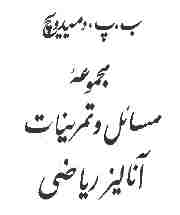 ب، پ، دمیدویچ
مجموعهٔ
مسائل و تمرینات
آنالیز ریاضی